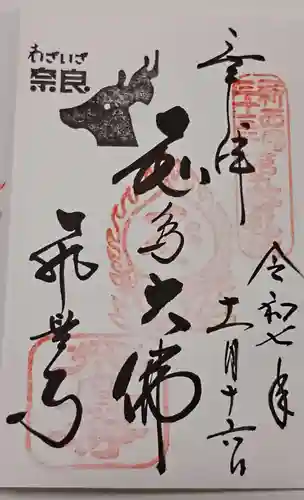 奉拝
わざいざ
奈良
飛鳥大佛
飛鳥寺
令和七年
十一月十六日